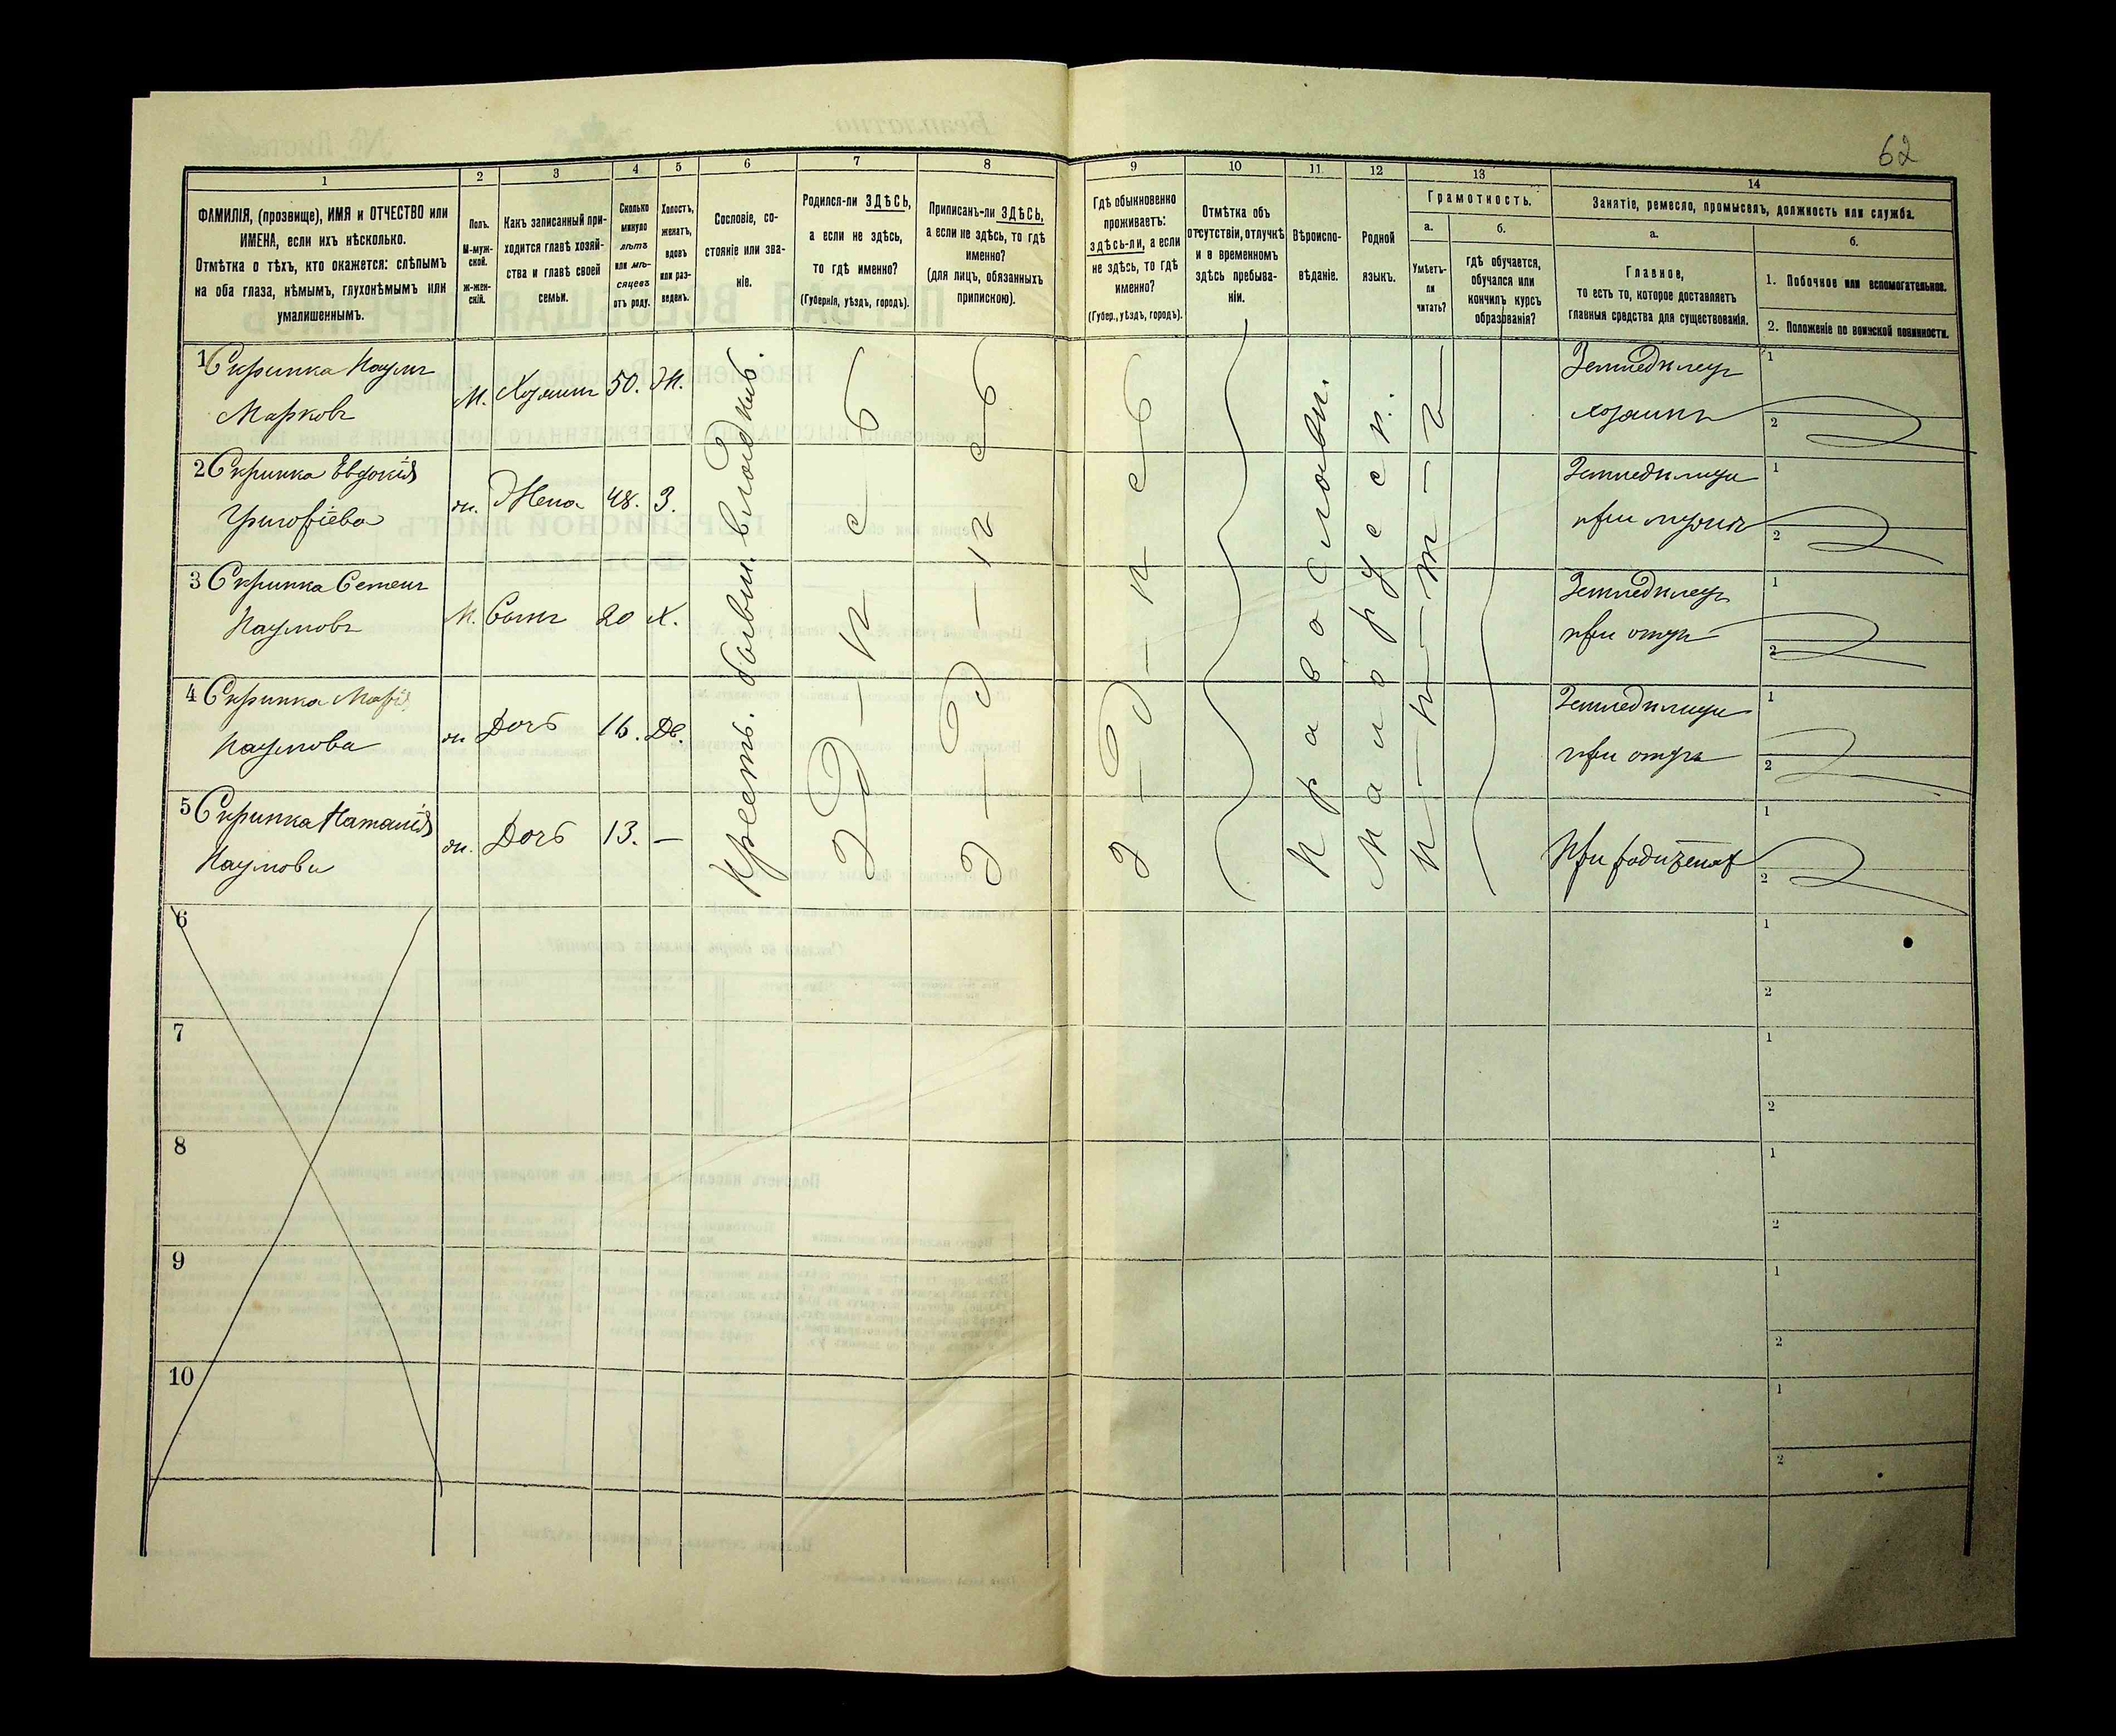 62
1
2
3
4
5
6
7
8
9
10
11
12
13
14
ФАМИЛІЯ, (прозвище), ИМЯ и ОТЧЕСТВО или
ИМЕНА, если ихъ нѣсколько.
Отмѣтка о тѣхъ, кто окажется: слѣпымъ
на оба глаза, нѣмымъ, глухонѣмымъ или
умалишеннымъ.
Полъ.
М-муж-
ской.
Ж-жен-
скій.
Какъ записанный при-
ходится главѣ хозяй-
ства и главѣ своей
семьи.
Сколько
минуло
лѣтъ
или мѣ-
сяцевъ
отъ роду.
Холостъ,
женатъ,
вдовъ
или раз-
веденъ.
Сословіе, со-
стояніе или зва-
ніе.
Родился-ли ЗДѢСЬ,
а если не здѣсь,
то гдѣ именно?
(Губернія, уѣздъ, городъ).
Приписанъ-ли ЗДѢСЬ,
а если не здѣсь, то гдѣ
именно?
(для лицъ, обязанныхъ
припискою).
Гдѣ обыкновенно
проживаетъ:
здѣсь-ли, а если
не здѣсь, то гдѣ
именно?
(Губер., уѣздъ, городъ).
Отмѣтка объ
отсутствіи, отлучкѣ
и о временномъ
здѣсь пребыва-
ніи.
Вѣроиспо-
вѣданіе.
Родной
языкъ.
Грамотность.
а.
Умѣетъ-
ли
читать?
б.
гдѣ обучается,
обучался или
кончилъ курсъ
образованія?
Занятіе, ремесло, промыселъ, должность или служба.
а.
Главное,
то есть то, которое доставляетъ
главныя средства для существованія.
б.
1. Побочное или вспомогательное.
2. Положеніе по воинской повинности.
1 Скрипка Наумъ
Марковъ
М. Хозяинъ 50. Ж.
Землед\ѣлецъ
хозяинъ
1
2
2 Скрипка Евдокія
Григорьева
ж. Жена 48. З.
Земледѣлица
при мужѣ
1
2
3 Скрипка Семенъ
Наумовъ
М. Сынъ 20 Х.
Земледѣлецъ
при отцѣ
1
2
4 Скрипка Марія
Наумова
ж Дочь 16. Дѣ.
Земледѣлица
при отцѣ
1
2
5 Скрипка Наталія
Наумова
ж. Дочь 13. —
При родителях
1
2
Крест. бывш. владѣль.
здѣсь
здѣсь
здѣсь
Православн.
Малорусск.
Нѣтъ
6
1
2
7
1
2
8
1
2
9
1
2
10
1
2